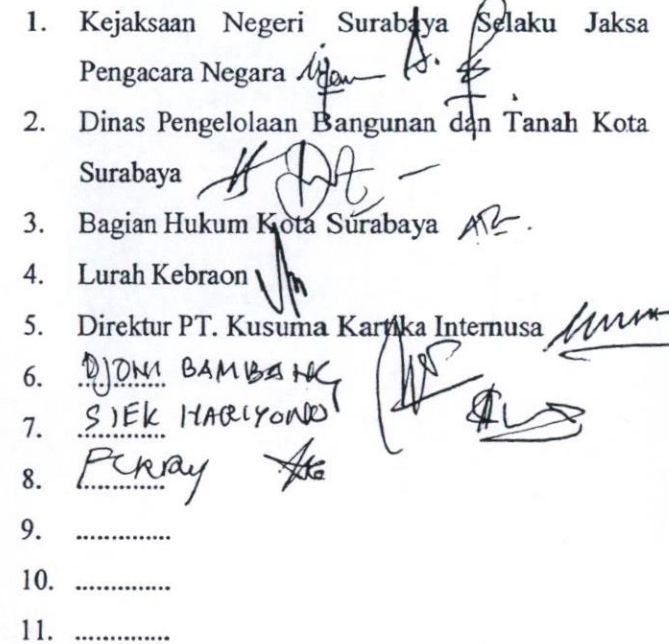 1. Kejaksaan Negeri Surabaya Selaku Jaksa
Pengacara Negara
2. Dinas Pengelolaan Bangunan dan Tanah Kota
Surabaya
3. Bagian Hukum Kota Surabaya
4. Lurah Kebraon
5. Direktur PT. Kusuma Kartika Internusa
6. DJONI BAMBANG
7. SIEK HARIYONO
8.
9. ..............
10. ..............
11. ..............